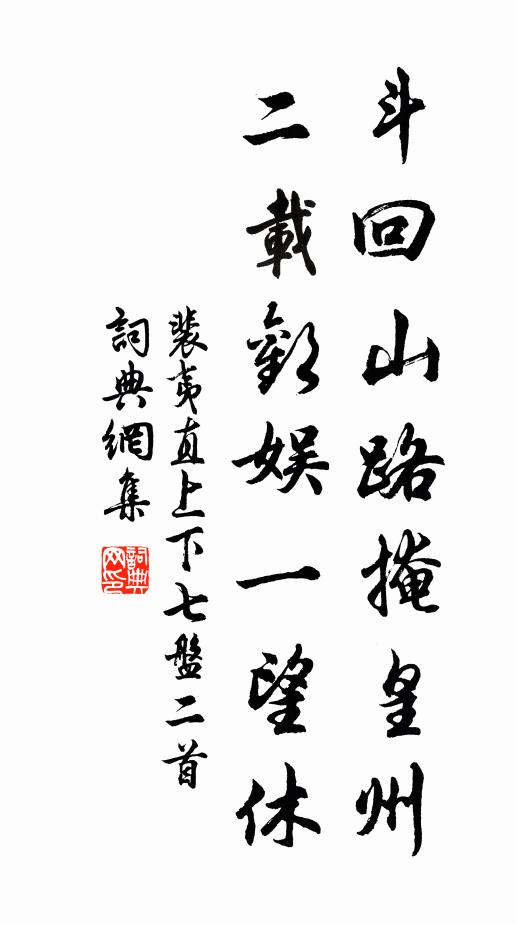 斗回山路掩皇州
二載歡娛一望休
裴夷直上下七盤二首
詞典網集
詞典网印